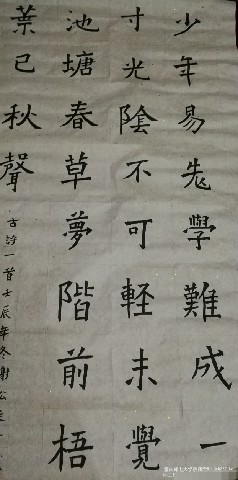 少年易老學難成一
寸光陰不可軽未覺
池塘春草夢階前梧
葉已秋聲
古詩一首壬辰年冬謝公